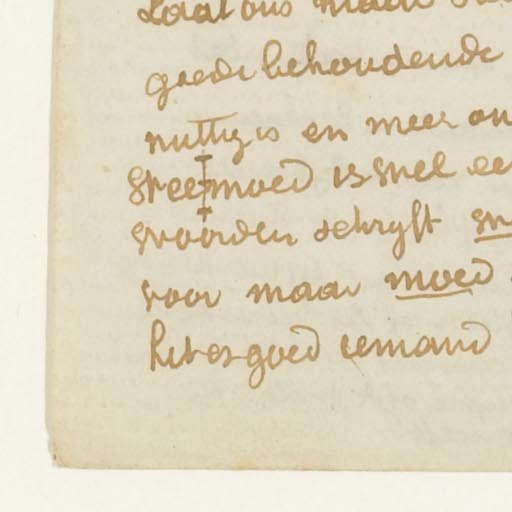 Laat ons maar
goede behoudende
nuttig is en meer
moed is snel
woorden schryft
voor maar moed
het is goed iemand